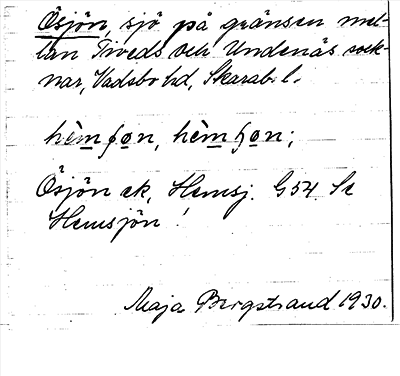 Ösjön, sjö på gränsen mel-
lan Tiveds och Undenäs sock-
nar, Vadsbo hd, Skarab. l.
hèmʃon, hèmɧon;
Ösjön ek, Hemsj. G54 Se
Hemsjön!
Maja Bergstrand 1930.